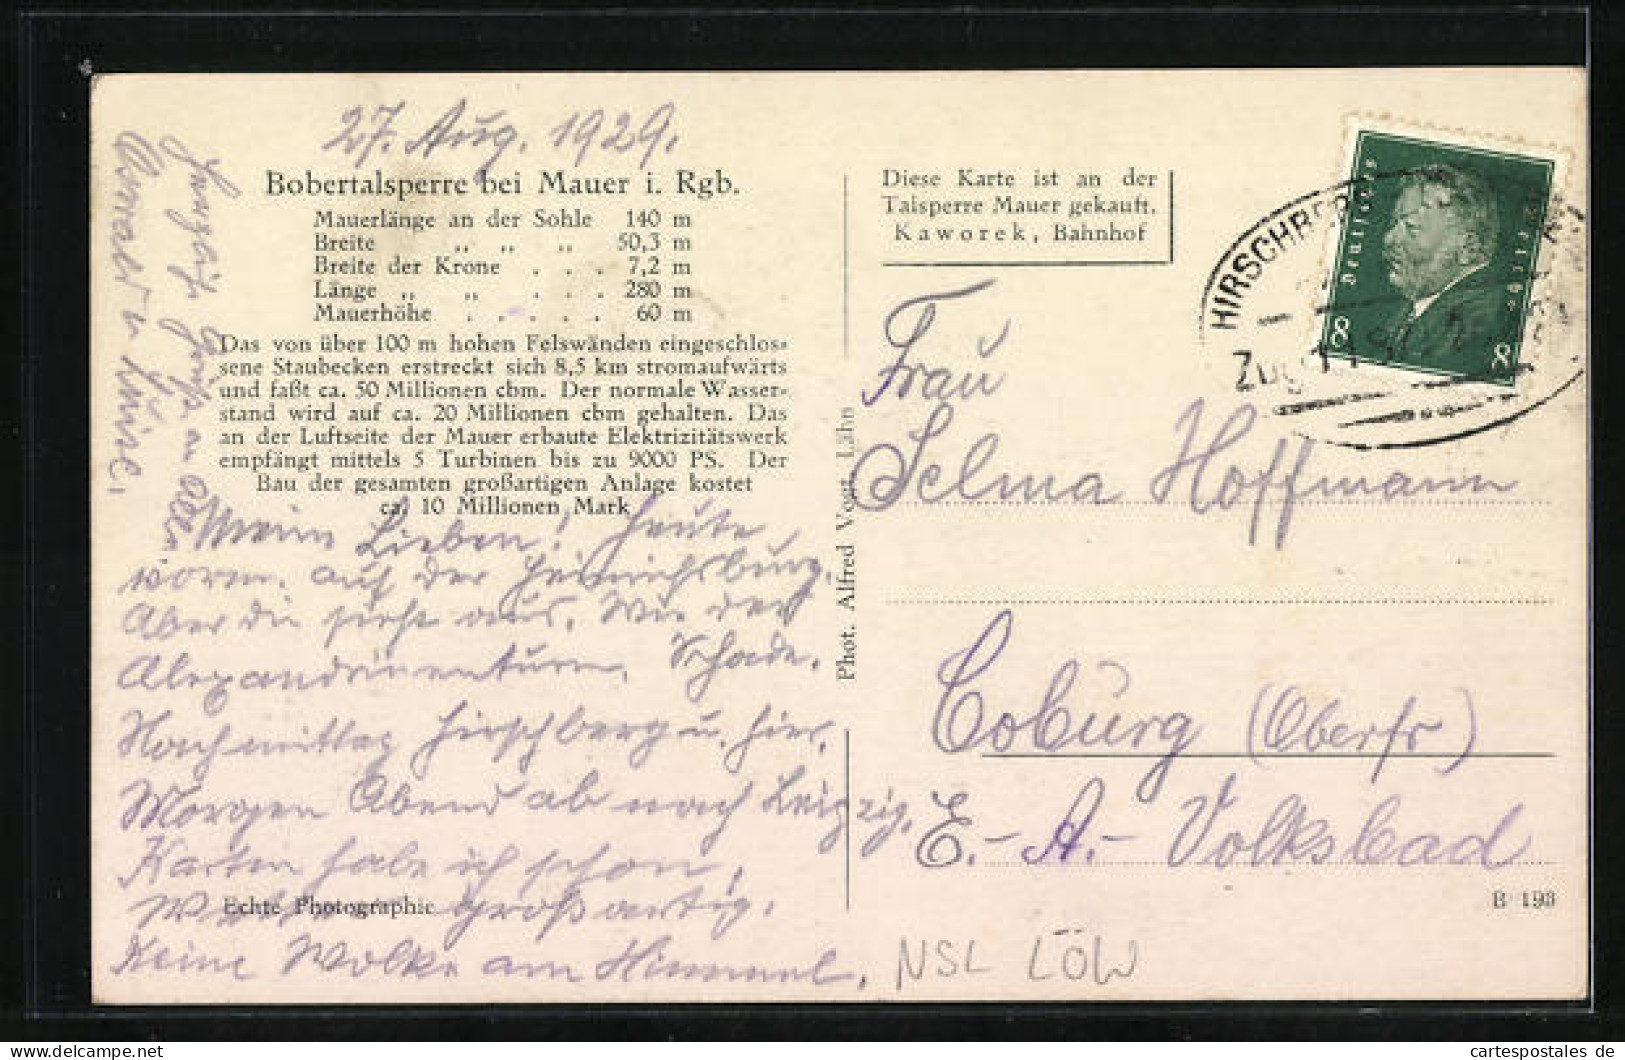 27. Aug. 1929.
Bobertalsperre bei Mauer i. Rgb.
Mauerlänge an der Sohle 140 m
Breite „ „ „ 50,3 m
Breite der Krone . . . 7,2 m
Länge „ „ . . . 280 m
Mauerhöhe . . . . . 60 m
Das von über 100 m hohen Felswänden eingeschlos-
sene Staubecken erstreckt sich 8,5 km stromaufwärts
und faßt ca. 50 Millionen cbm. Der normale Wasser-
stand wird auf ca. 20 Millionen cbm gehalten. Das
an der Luftseite der Mauer erbaute Elektrizitätswerk
empfängt mittels 5 Turbinen bis zu 9000 PS. Der
Bau der gesamten großartigen Anlage kostet
ca. 10 Millionen Mark
Meine Lieben! Heute
waren auf der Heinrichsburg.
Aber die sieht aus. Wie der
Alexandrinenturm. Schade.
Nachmittag Hirschberg u. hier.
Morgen Abend ab nach Leipzig.
Karten habe ich schon.
Echte Photographie
großartig.
Keine Wolke am Himmel.
Herzlich Grüße an Alle
u. Luise.
Phot. Alfred Vogt, Lähn
Diese Karte ist an der
Talsperre Mauer gekauft.
Kaworek, Bahnhof
Deutsches Reich
8 8
HIRSCHBERG
Zug
Frau
Selma Hoffmann
Coburg (Oberfr)
E.-A.- Volksbad
B 193
NSL LÖW
cartespostales de